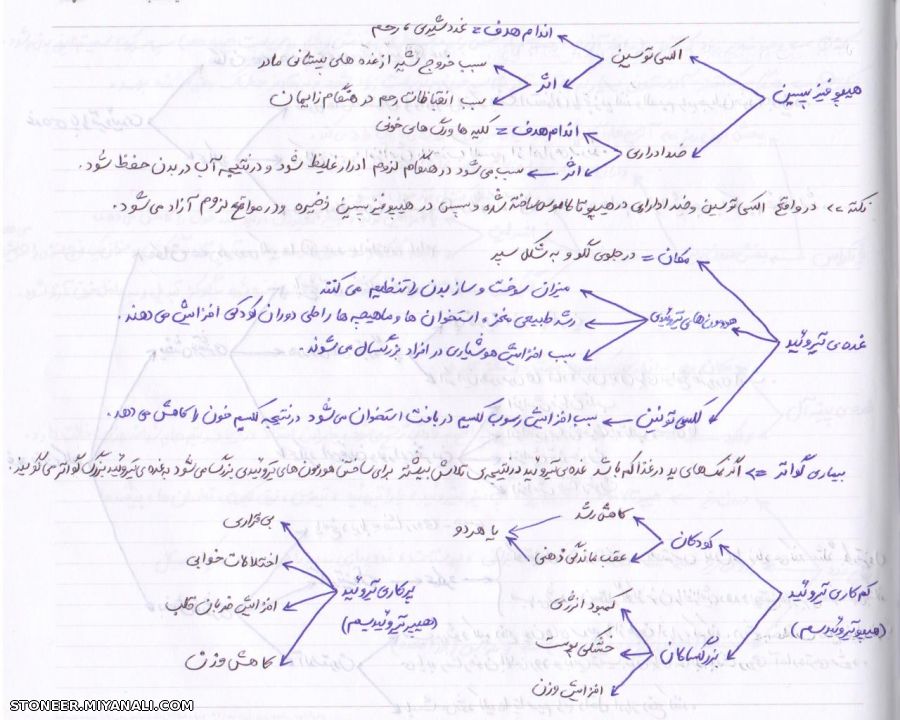 هیپوفیز پسین
اکسی توسین
اندام هدف = غدد شیری، رحم
اثر
سبب خروج شیر از غده های پستانی مادر
سبب انقباضات رحم در هنگام زایمان
ضد ادراری
اندام هدف = کلیه ها و رگ های خونی
اثر
سبب می شود در هنگام لزوم ادرار غلیظ شود و در نتیجه آب در بدن حفظ شود.
نکته => در واقع اکسی توسین و ضد ادراری در هیپوتالاموس ساخته شده و سپس در هیپوفیز پسین ذخیره و در مواقع لزوم آزاد می شود.
غده ی تیروئید
مکان = در جلوی گلو و به شکل سپر
هورمون های تیروئیدی
میزان سوخت و ساز بدن را تنظیم می کنند
رشد طبیعی مغز، استخوان ها و ماهیچه ها را طی دوران کودکی افزایش می دهند.
سبب افزایش هوشیاری در افراد بزرگسال می شوند.
کلسی تونین
سبب افزایش رسوب کلسیم در بافت استخوان می شود در نتیجه کلسیم خون را کاهش می دهد.
بیماری گواتر => اگر نمک های ید در غذا کم باشد غده ی تیروئید در نتیجه ی تلاش بیشتر برای ساختن هورمون های تیروئیدی بزرگ می شود به غده ی تیروئید بزرگ گواتر می گویند.
کم کاری تیروئید
(هیپوتیروئیدیسم)
کودکان
کاهش رشد
عقب ماندگی ذهنی
یا هر دو
بزرگسالان
کمبود انرژی
خشکی پوست
افزایش وزن
پرکاری تیروئید
(هیپرتیروئیدیسم)
بی قراری
اختلالات خوابی
افزایش ضربان قلب
کاهش وزن
STONEER.MIYANALI.COM